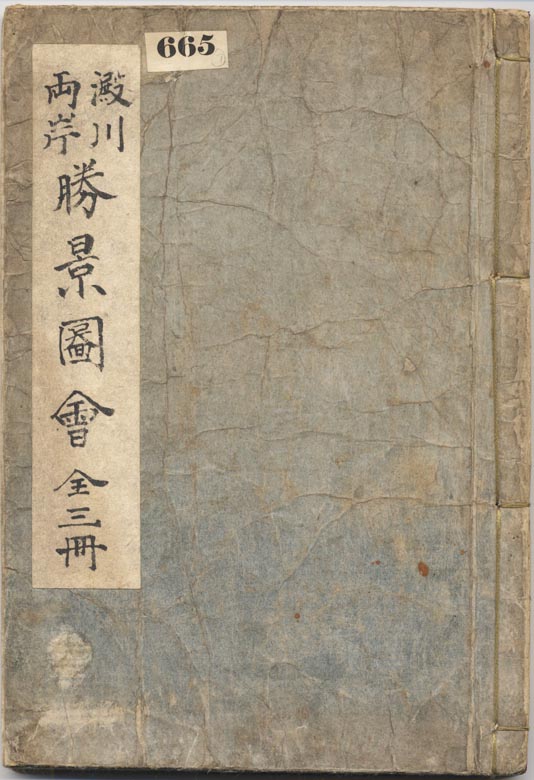 665
澱川
両岸
勝景圖會 全三冊